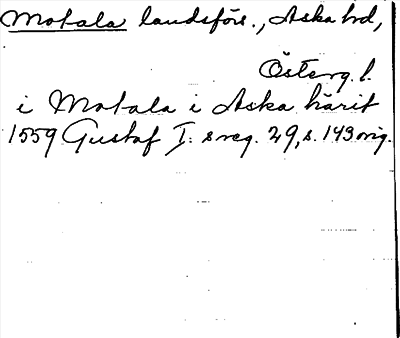 Motala landsförs., Aska hd,
Österg. l.
i Motala i Aska härit
1559 Gustaf I:s reg. 29, s. 143 orig.